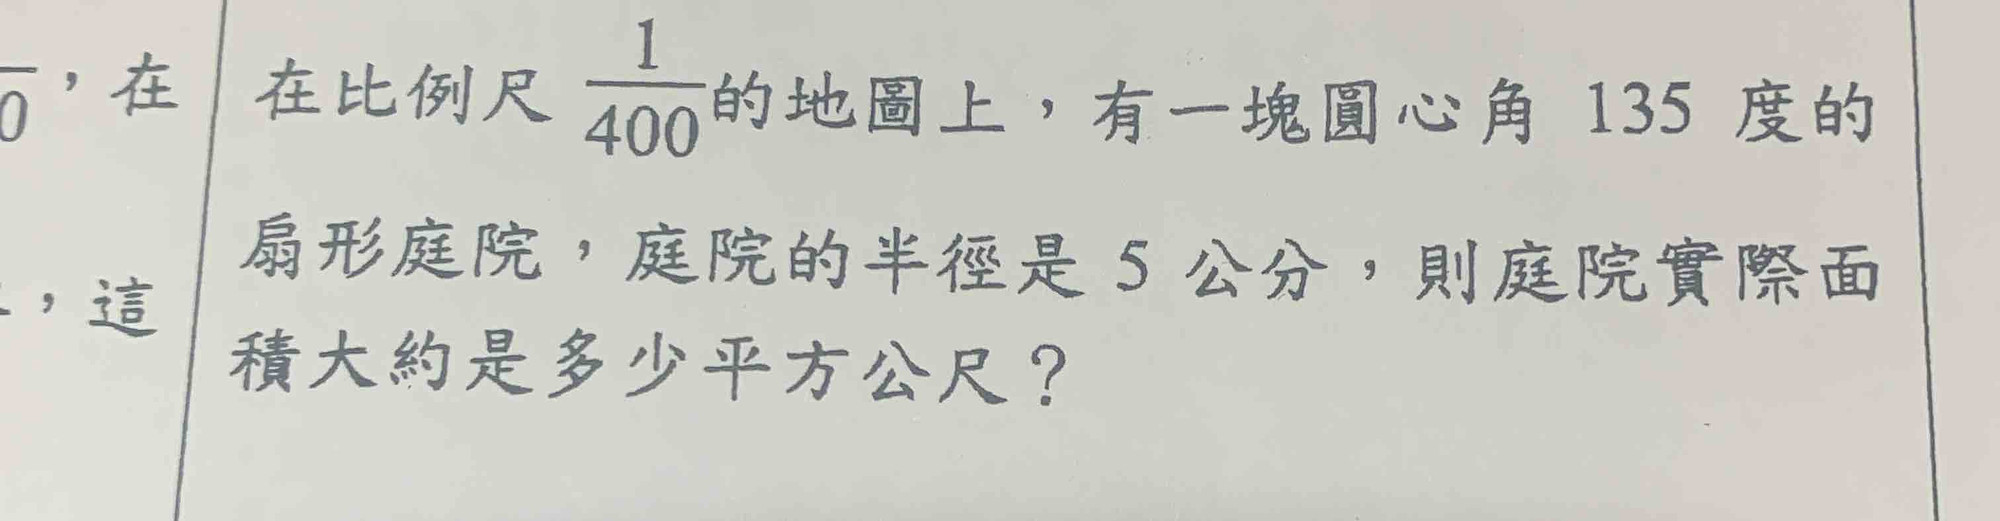 0，在
在比例尺 1/400 的地圖上，有一塊圓心角 135 度的
扇形庭院，庭院的半徑是 5 公分，則庭院實際面
，這
積大約是多少平方公尺？